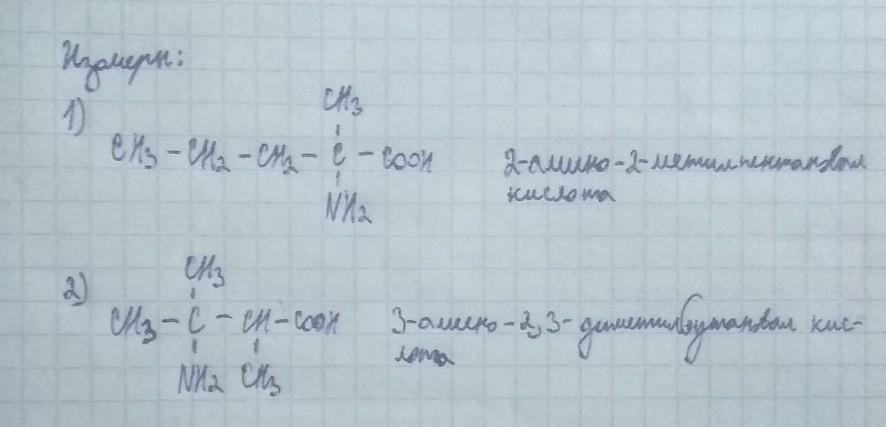 Изомеры:
1)
CH3
CH3 - CH2 - CH2 - C - COOH
NH2
2-амино-2-метилпентановая
кислота
2)
CH3
CH3 - C - CH - COOH
NH2 CH3
3-амино-2,3-диметилбутановая кис-
лота